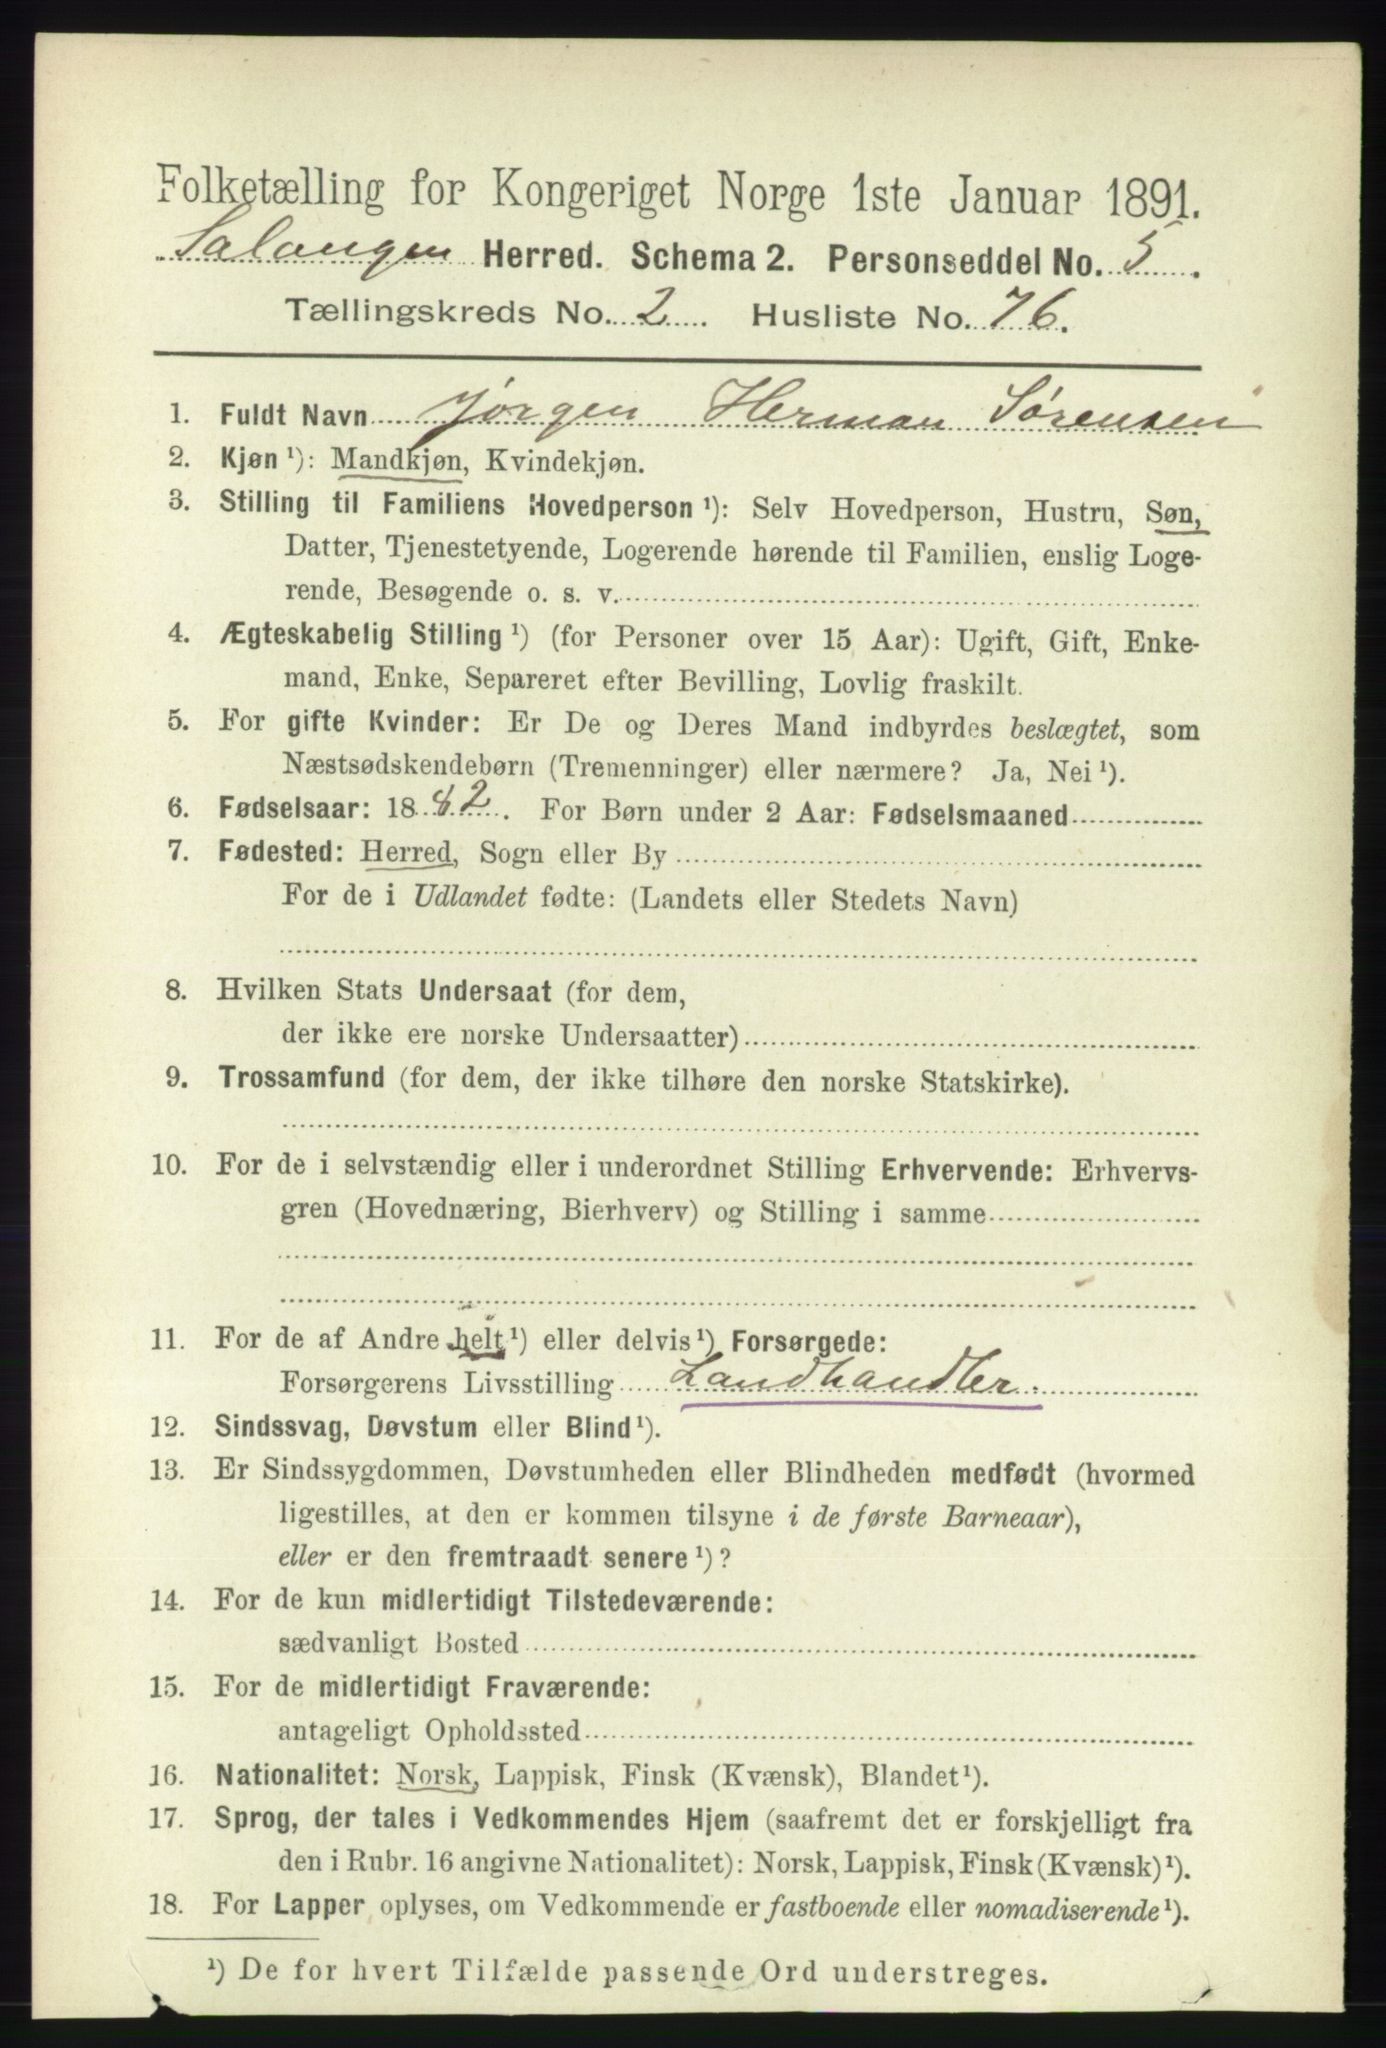 Folketælling for Kongeriget Norge 1ste Januar 1891.
Salangen Herred. Schema 2. Personseddel No. 5.
Tællingskreds No. 2. Husliste No. 76.
1. Fuldt Navn Jørgen Herman Sørensen
2. Kjøn ¹): Mandkjøn, Kvindekjøn.
3. Stilling til Familiens Hovedperson ¹): Selv Hovedperson, Hustru, Søn,
Datter, Tjenestetyende, Logerende hørende til Familien, enslig Loge-
rende, Besøgende o. s. v.
4. Ægteskabelig Stilling ¹) (for Personer over 15 Aar): Ugift, Gift, Enke-
mand, Enke, Separeret efter Bevilling, Lovlig fraskilt.
5. For gifte Kvinder: Er De og Deres Mand indbyrdes beslægtet, som
Næstsødskendebørn (Tremenninger) eller nærmere? Ja, Nei ¹).
6. Fødselsaar: 1882. For Børn under 2 Aar: Fødselsmaaned
7. Fødested: Herred, Sogn eller By
For de i Udlandet fødte: (Landets eller Stedets Navn)
8. Hvilken Stats Undersaat (for dem,
der ikke ere norske Undersaatter)
9. Trossamfund (for dem, der ikke tilhøre den norske Statskirke).
10. For de i selvstændig eller i underordnet Stilling Erhvervende: Erhvervs-
gren (Hovednæring, Bierhverv) og Stilling i samme
11. For de af Andre helt ¹) eller delvis ¹) Forsørgede:
Forsørgerens Livsstilling Landhandler.
12. Sindssvag, Døvstum eller Blind ¹).
13. Er Sindssygdommen, Døvstumheden eller Blindheden medfødt (hvormed
ligestilles, at den er kommen tilsyne i de første Barneaar),
eller er den fremtraadt senere ¹)?
14. For de kun midlertidigt Tilstedeværende:
sædvanligt Bosted
15. For de midlertidigt Fraværende:
antageligt Opholdssted
16. Nationalitet: Norsk, Lappisk, Finsk (Kvænsk), Blandet ¹).
17. Sprog, der tales i Vedkommendes Hjem (saafremt det er forskjelligt fra
den i Rubr. 16 angivne Nationalitet): Norsk, Lappisk, Finsk (Kvænsk) ¹).
18. For Lapper oplyses, om Vedkommende er fastboende eller nomadiserende ¹).
¹) De for hvert Tilfælde passende Ord understreges.